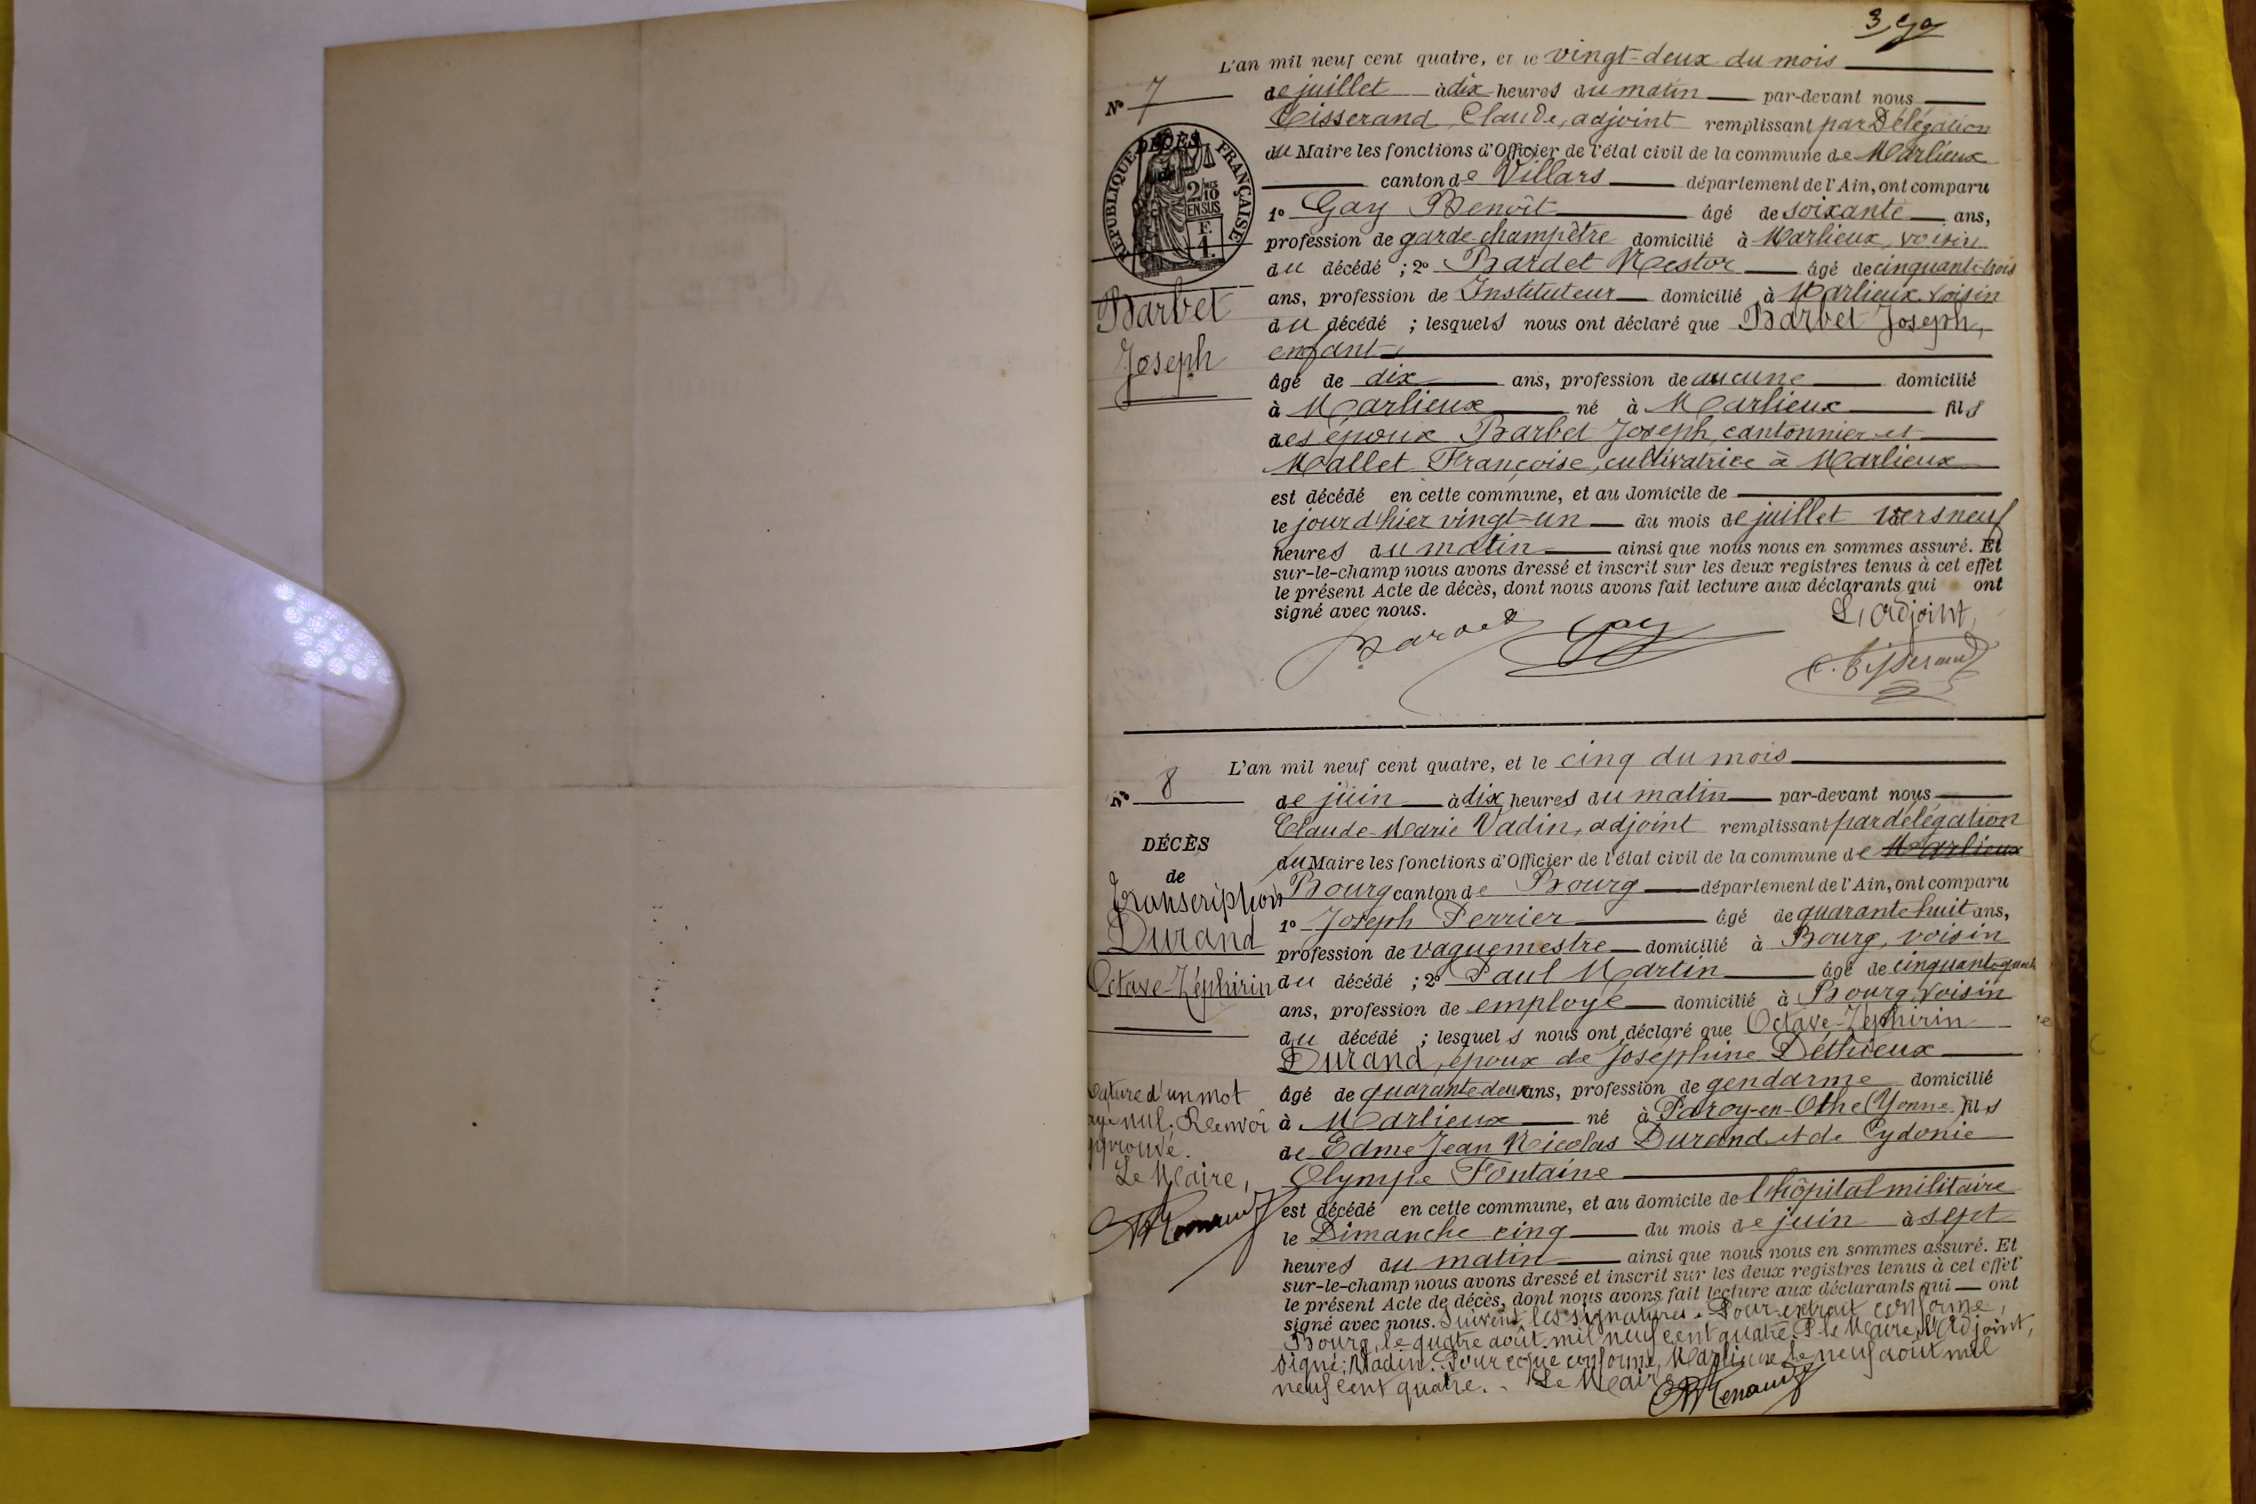 3
L'an mil neuf cent quatre, et le vingt-deux du mois
N° 7
de juillet à dix heures du matin par-devant nous
Tisserand Claude, adjoint remplissant par Délégation
du Maire les fonctions d'Officier de l'état civil de la commune de Marlieux
canton de Villars département de l'Ain, ont comparu
DÉCÈS
de
RÉPUBLIQUE FRANÇAISE
2/10
EN SUS
F.
1.
1° Gay Benoît âgé de soixante ans,
profession de garde-champêtre domicilié à Marlieux, voisin
du décédé ; 2° Bardet Nestor âgé de cinquante-trois
ans, profession de Instituteur domicilié à Marlieux, voisin
Barbet
Joseph
du décédé ; lesquels nous ont déclaré que Barbet Joseph,
enfant,
âgé de dix ans, profession de aucune domicilié
à Marlieux né à Marlieux fils
des époux Barbet Joseph, cantonnier et
Mallet Françoise, cultivatrice à Marlieux
est décédé en cette commune, et au domicile de
le jour d'hier vingt-un du mois de juillet vers neuf
heures du matin ainsi que nous nous en sommes assuré. Et
sur-le-champ nous avons dressé et inscrit sur les deux registres tenus à cet effet
le présent Acte de décès, dont nous avons fait lecture aux déclarants qui ont
signé avec nous.
L'Adjoint,
Bardet Gay C. Tisserand
L'an mil neuf cent quatre, et le cinq du mois
N° 8
de juin à dix heures du matin par-devant nous
Claude-Marie Vadin, adjoint remplissant par délégation
du Maire les fonctions d'Officier de l'état civil de la commune de Marlieux
Bourg canton de Bourg département de l'Ain, ont comparu
DÉCÈS
de
Transcription
Durand
Octave-Zéphirin
1° Joseph Perrier âgé de quarante huit ans,
profession de vaguemestre domicilié à Bourg, voisin
du décédé ; 2° Paul Martin âgé de cinquante-quatre
ans, profession de employé domicilié à Bourg, voisin
du décédé ; lesquels nous ont déclaré que Octave-Zéphirin
Durand, époux de Joséphine Déthieux
âgé de quarante deux ans, profession de gendarme domicilié
à Marlieux né à Paroy-en-Othe (Yonne) fils
de Edme Jean Nicolas Durand et de Cydonie
Olympe Fontaine
est décédé en cette commune, et au domicile de l'hôpital militaire
le Dimanche cinq du mois de juin à sept
heures du matin ainsi que nous nous en sommes assuré. Et
sur-le-champ nous avons dressé et inscrit sur les deux registres tenus à cet effet
le présent Acte de décès, dont nous avons fait lecture aux déclarants qui ont
signé avec nous. Suivent les signatures. Pour extrait conforme,
Bourg, le quatre août mil neuf cent quatre. P. le Maire, l'Adjoint,
Signé: Vadin. Pour copie conforme, Marlieux le neuf août mil
neuf cent quatre. Le Maire
Rature d'un mot
rayé nul; Renvoi
approuvé.
Le Maire,